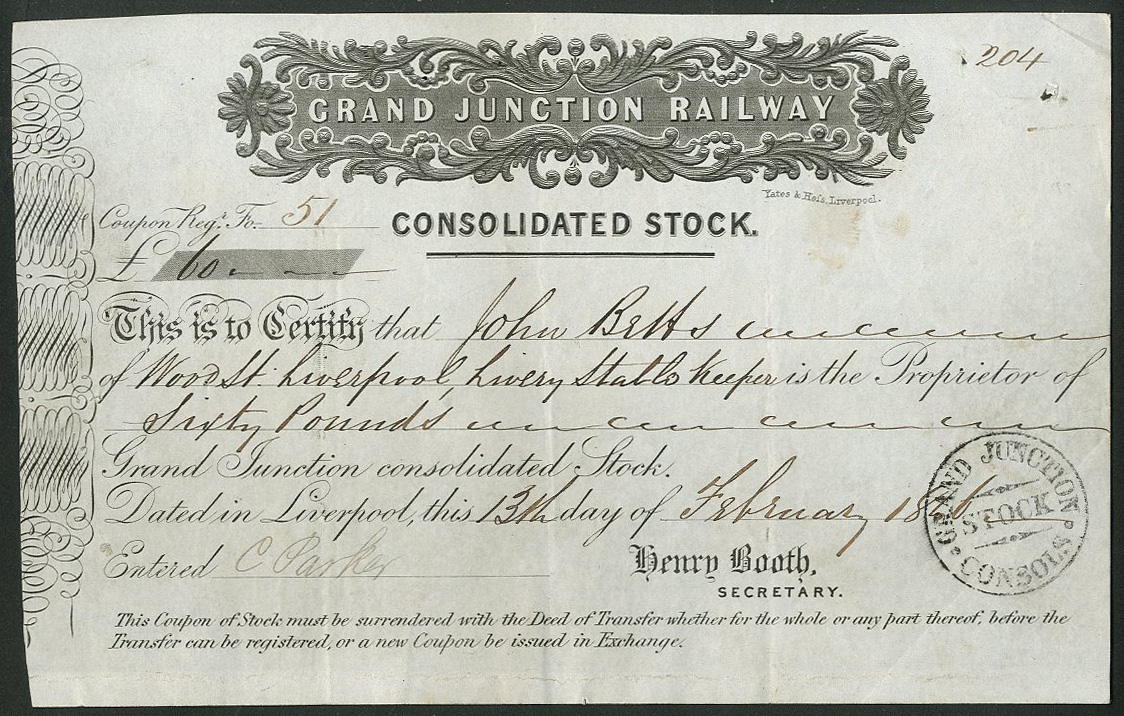 204
GRAND JUNCTION RAILWAY
Yates & Hess, Liverpool.
Coupon Regr. Fo. 51
CONSOLIDATED STOCK.
£ 60
This is to Certify that John Betts
of Wood St. Liverpool, Livery Stable Keeper is the Proprietor of
Sixty Pounds
Grand Junction consolidated Stock.
Dated in Liverpool, this 13th day of February 1846
Entered C Parker
Henry Booth,
SECRETARY.
GRAND JUNCTION
STOCK
CONSOLS
This Coupon of Stock must be surrendered with the Deed of Transfer whether for the whole or any part thereof, before the
Transfer can be registered, or a new Coupon be issued in Exchange.